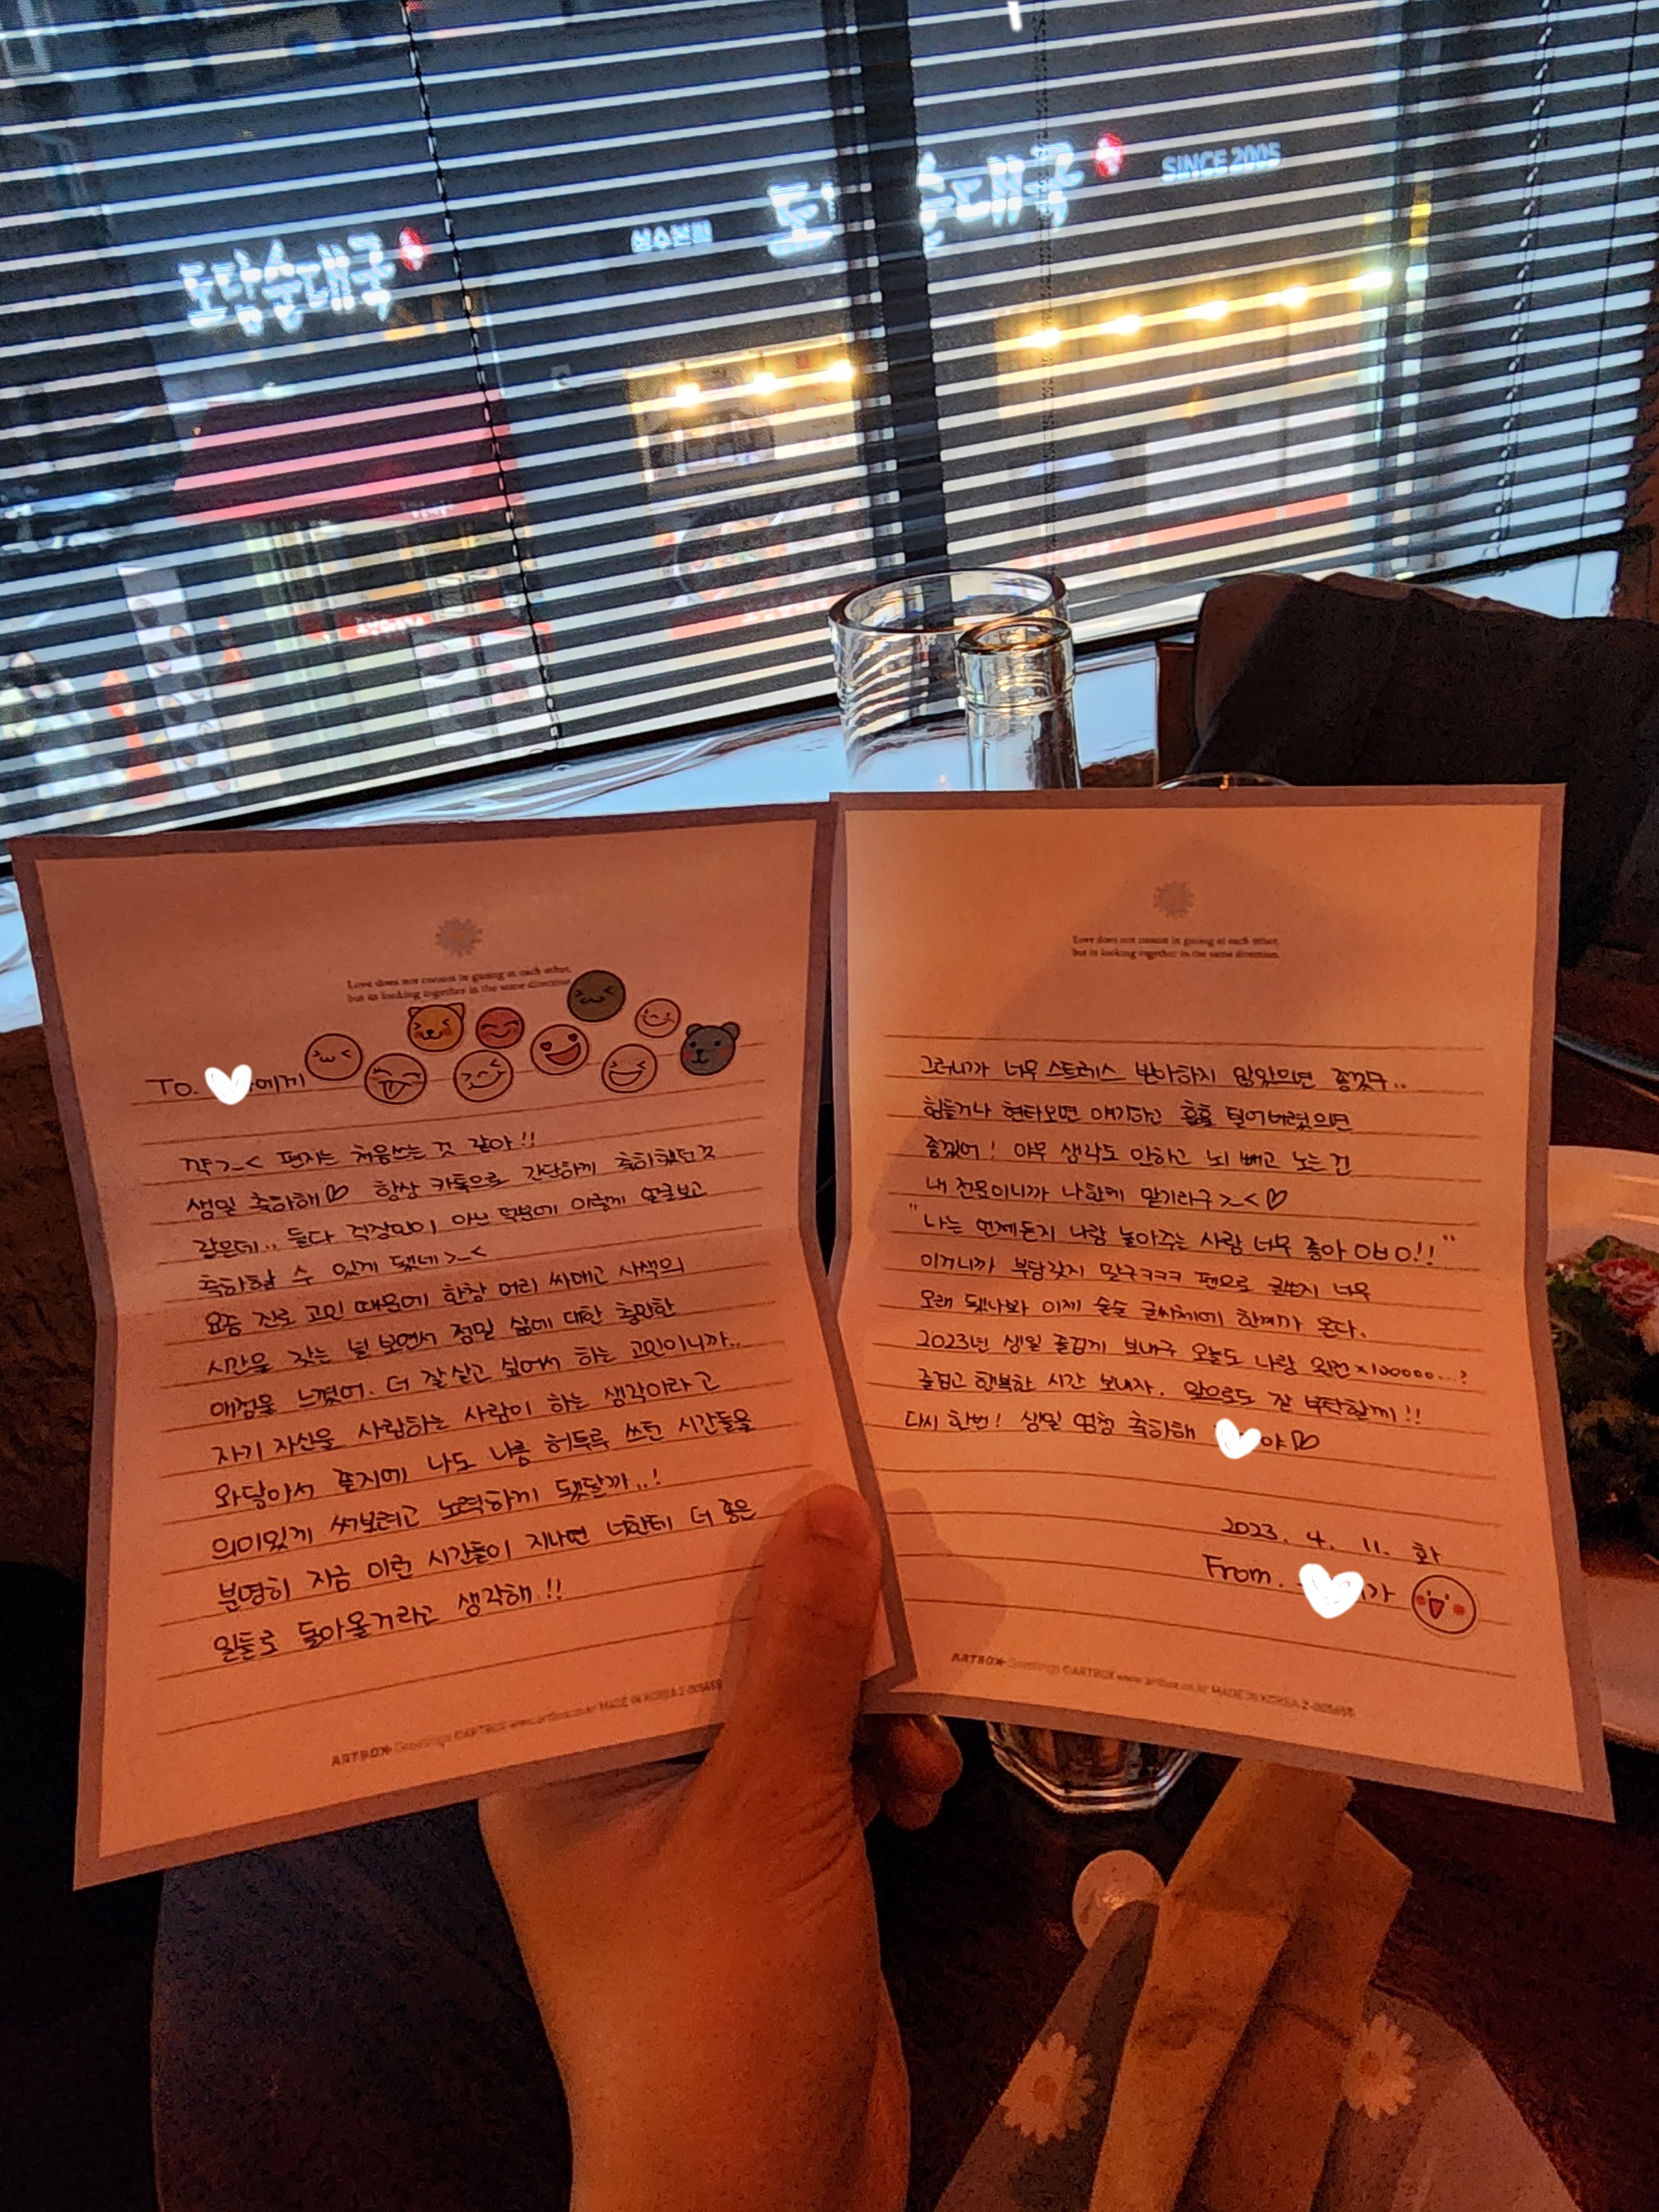 도담순대국
성수본점
순대국
SINCE 2005
Love does not consist in gazing at each other,
but in looking together in the same direction.
TO. 에게
꺅>_< 편지는 처음쓰는 것 같아!!
생일 축하해♡ 항상 카톡으로 간단하게 축하했던것
같은데.. 둘다 직장인이 아닌 덕분에 이렇게 얼굴보고
축하할 수 있게 됐네>_<
요즘 진로 고민 때문에 한창 머리 싸매고 사색의
시간을 갖는 널 보면서 정말 삶에 대한 충만한
애정을 느꼈어. 더 잘살고 싶어서 하는 고민이니까..
자기 자신을 사랑하는 사람이 하는 생각이라고
와닿아서 나도 나름 허투루 쓰던 시간들을
의미있게 써보려고 노력하게 됐달까..!
분명히 지금 이런 시간들이 지나면 너한테 더 좋은
일들로 돌아올거라고 생각해!!
ARTBOX Greetings ©ARTBOX www.artbox.co.kr MADE IN KOREA
Love does not consist in gazing at each other,
but in looking together in the same direction.
그러니까 너무 스트레스 받아하지 않았으면 좋겠구..
힘들거나 현타오면 얘기하고 훌훌 털어버렸으면
좋겠어! 아무 생각도 안하고 뇌 빼고 노는건
내 전문이니까 나한테 맡기라구>_<♡
"나는 언제든지 나랑 놀아주는 사람 너무 좋아 OㅂO!!"
이거니까 부담갖지 말구ㅋㅋㅋ 펜으로 글쓴지 너무
오래 됐나봐 이제 슬슬 글씨체에 한계가 온다.
2023년 생일 즐겁게 보내구 오늘도 나랑 완전×100000...?
즐겁고 행복한 시간 보내자. 앞으로도 잘 부탁할게!!
다시 한번! 생일 엄청 축하해 야♡
2023. 4. 11. 화
From. 가
ARTBOX Greetings ©ARTBOX www.artbox.co.kr MADE IN KOREA